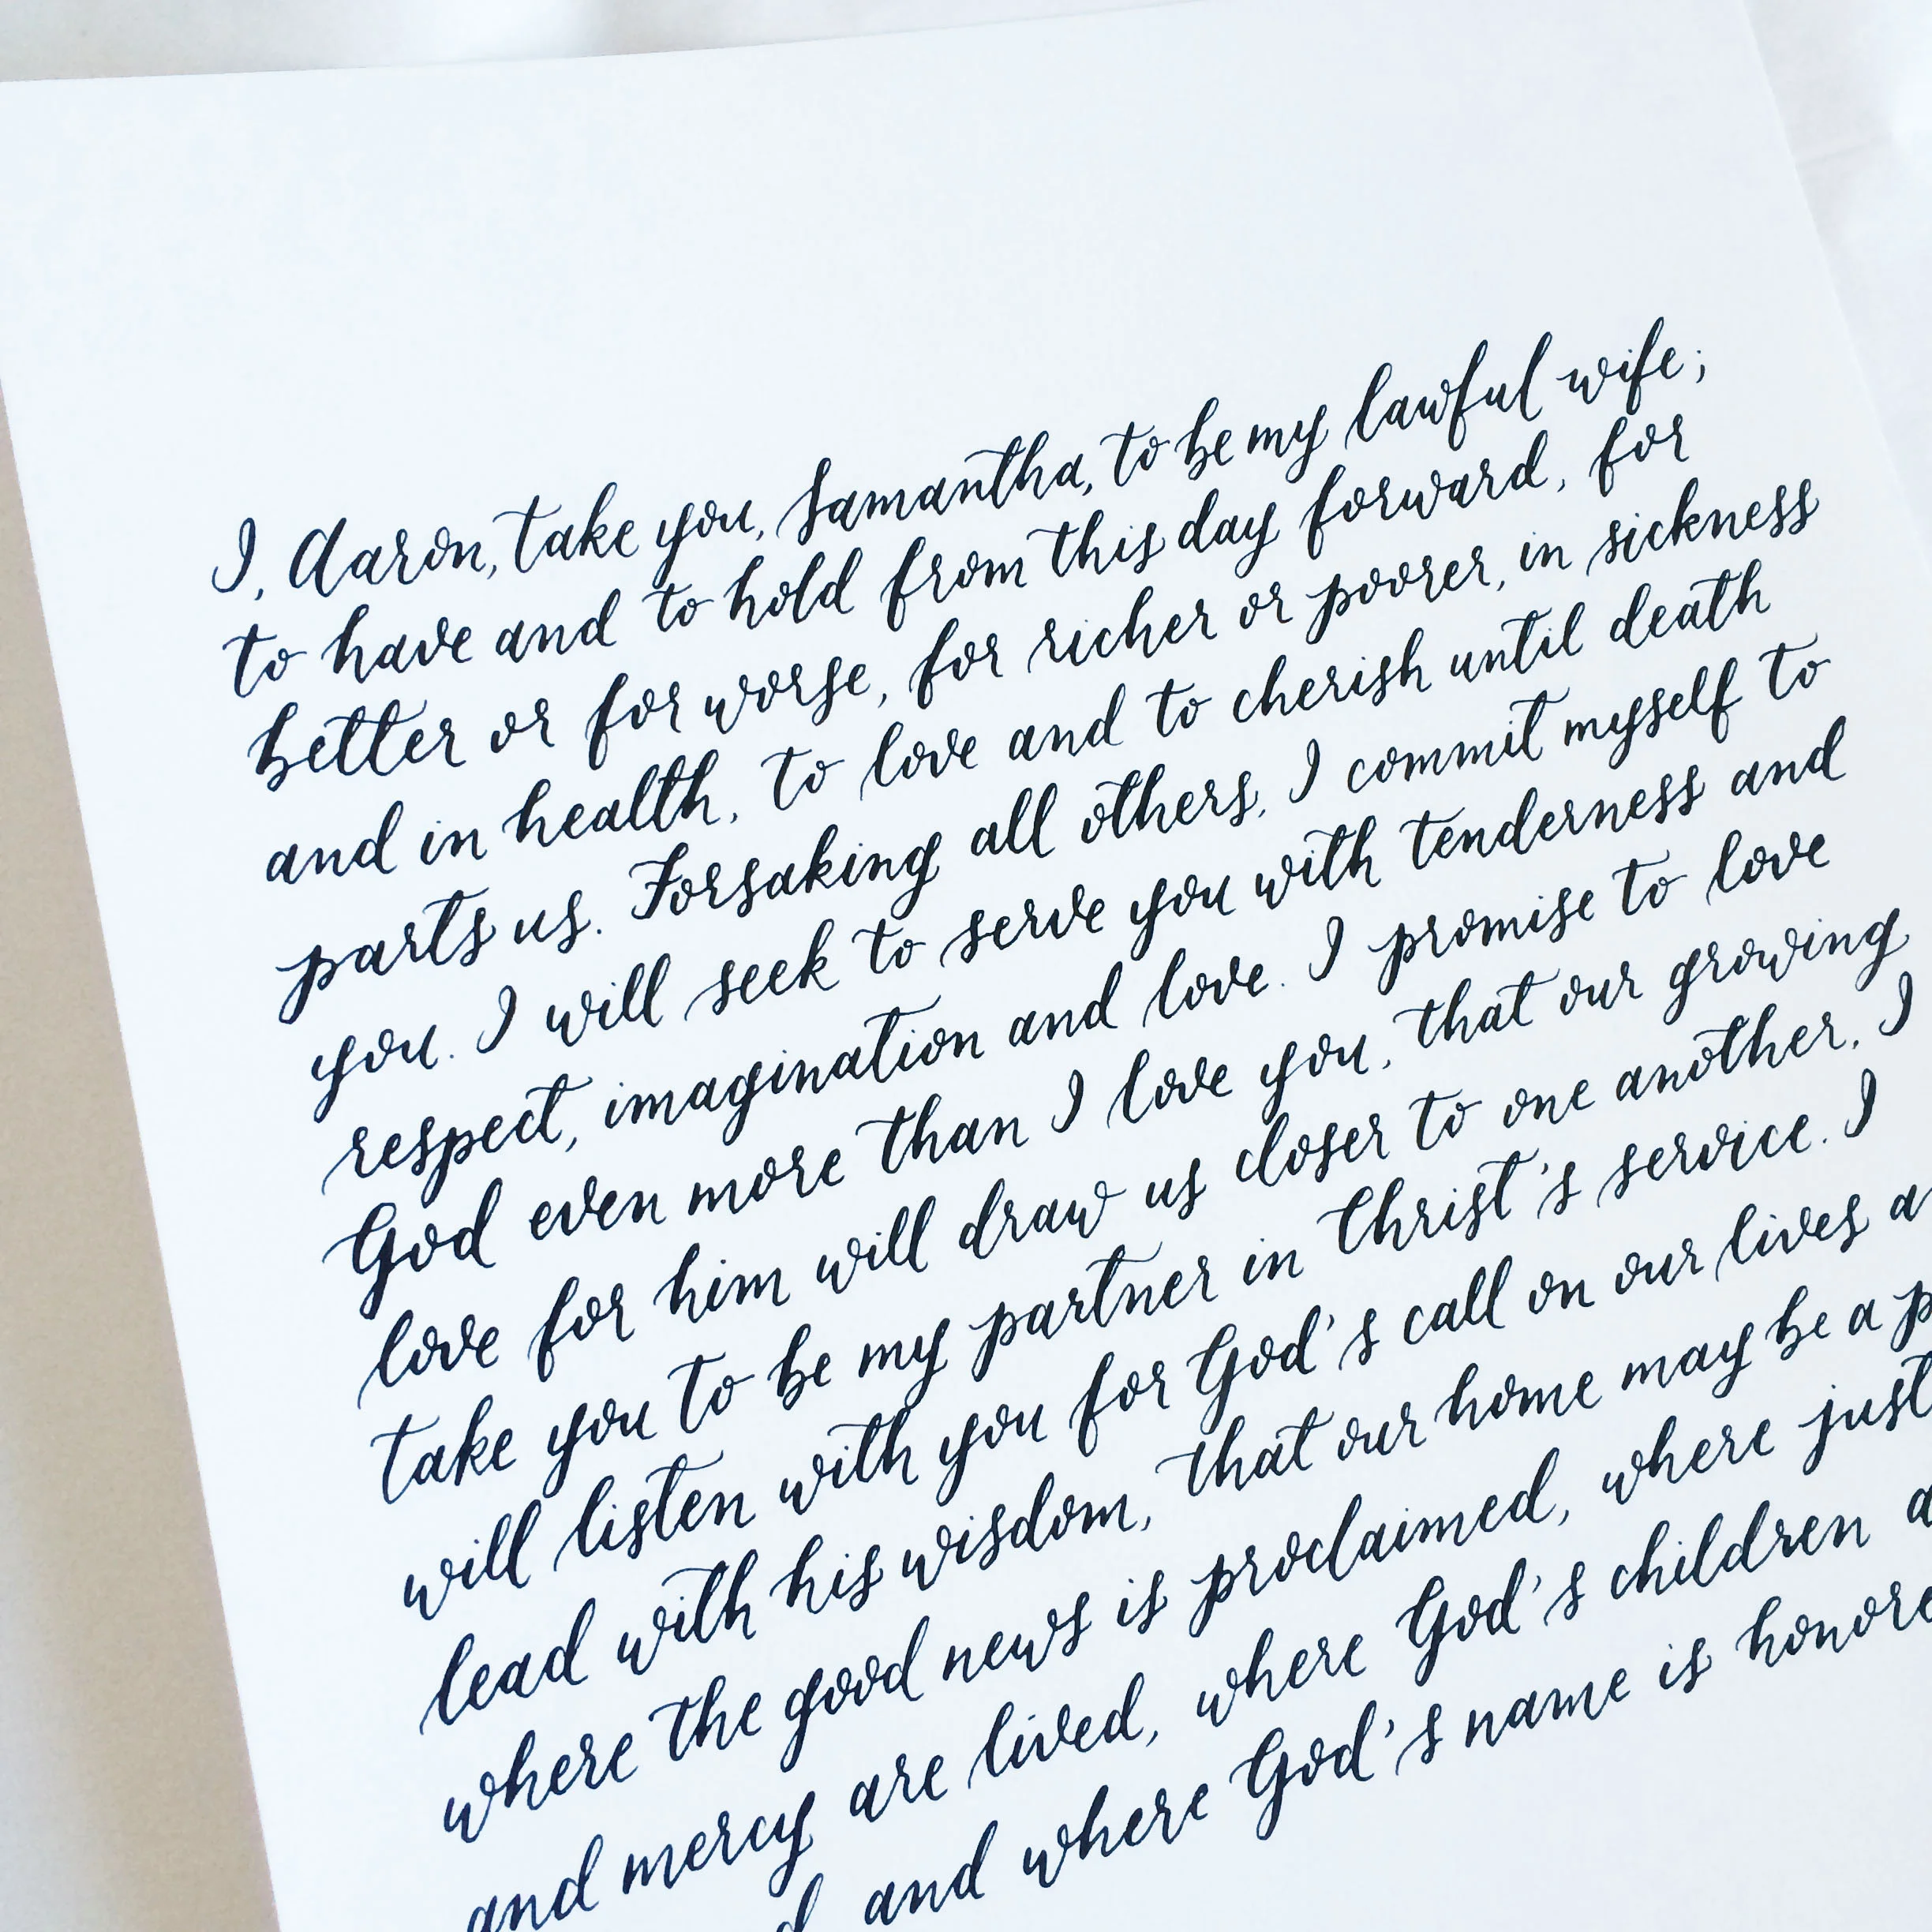 I, Aaron, take you, Samantha, to be my lawful wife;
to have and to hold from this day forward, for
better or for worse, for richer or poorer, in sickness
and in health, to love and to cherish until death
parts us. Forsaking all others, I commit myself to
you. I will seek to serve you with tenderness and
respect, imagination and love. I promise to love
God even more than I love you, that our growing
love for him will draw us closer to one another. I
take you to be my partner in Christ's service. I
will listen with you for God's call on our lives
lead with his wisdom, that our home may be a
where the good news is proclaimed, where
and mercy are lived, where God's children
and where God's name is